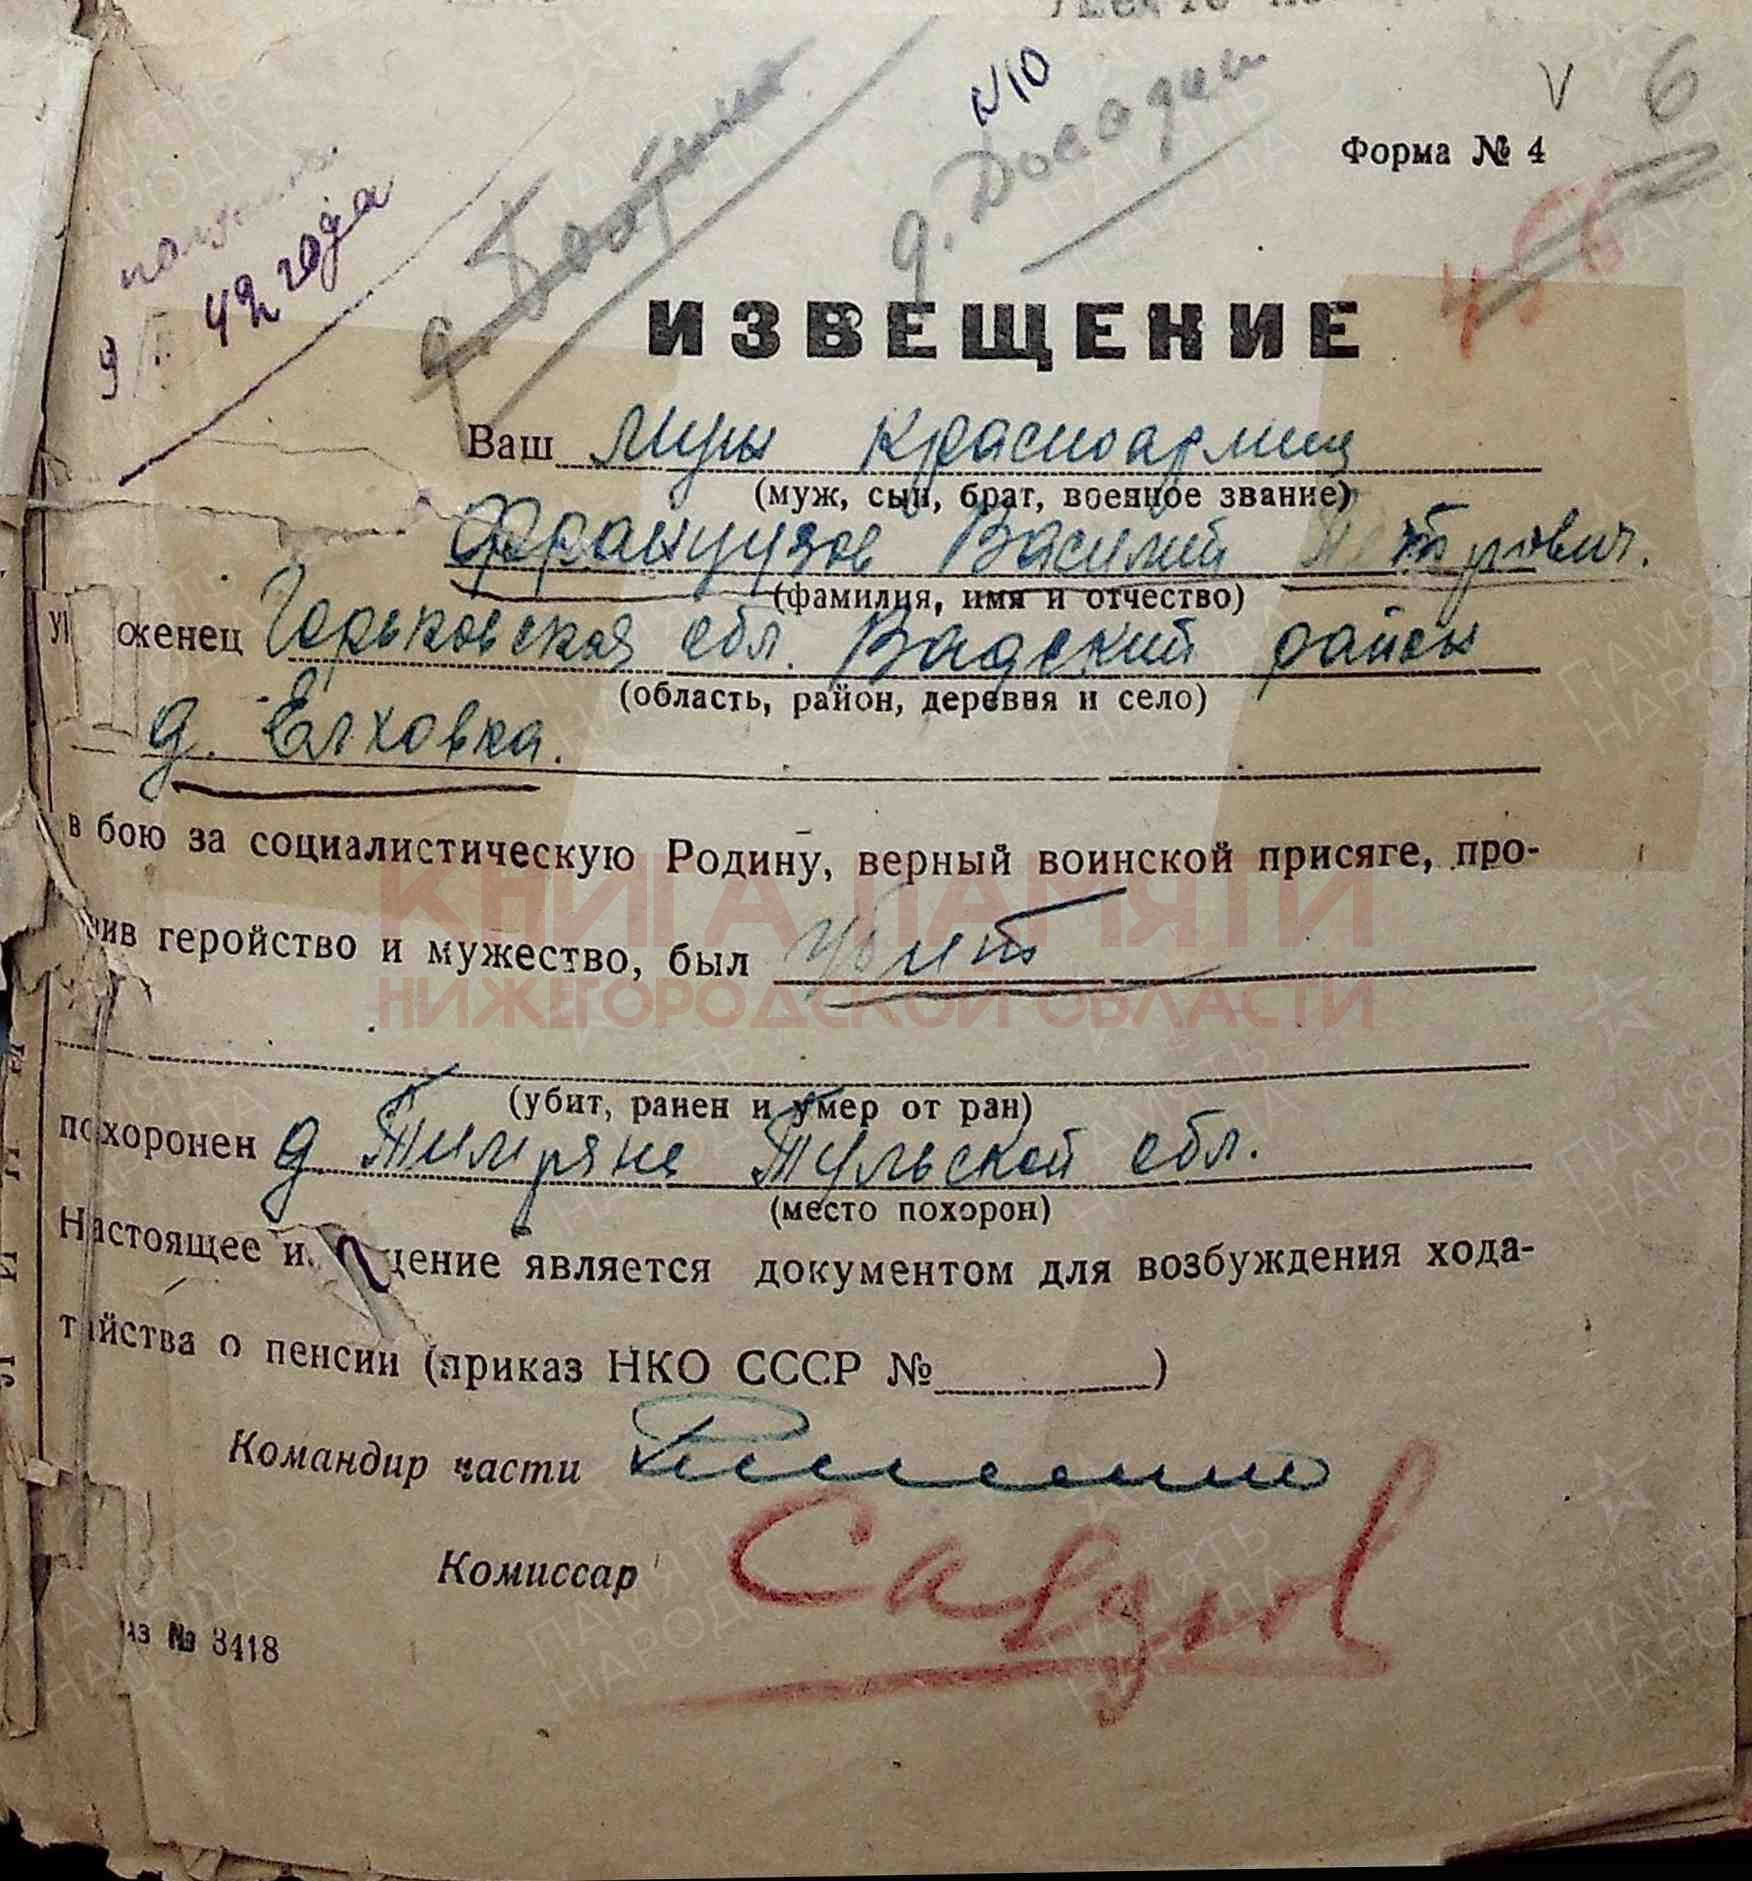 №10
V 6
Форма № 4
д. Досадин
9/ 42 года
ИЗВЕЩЕНИЕ
Ваш муж красноармеец
(муж, сын, брат, военное звание)
Французов Василий Петрович.
(фамилия, имя и отчество)
ук оженец Горьковская обл. Вадский район
(область, район, деревня и село)
д. Елховка.
в бою за социалистическую Родину, верный воинской присяге, про-
ив геройство и мужество, был убит
(убит, ранен и умер от ран)
похоронен д Тимряне Тульской обл.
(место похорон)
Настоящее и щение является документом для возбуждения хода-
тайства о пенсии (приказ НКО СССР № )
Командир части
Комиссар
аз № 3418
КНИГА ПАМЯТИ
НИЖЕГОРОДСКОЙ ОБЛАСТИ
ПАМЯТЬ НАРОДА